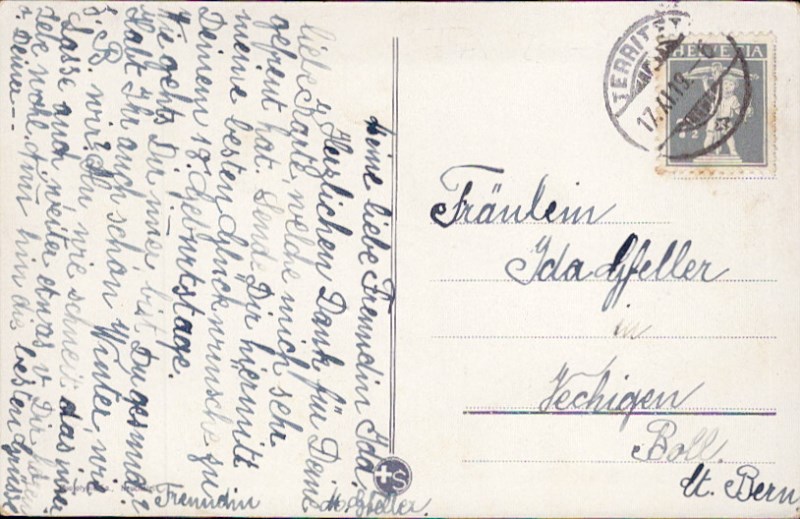 Meine liebe Freundin Ida.
Herzlichen Dank für Deine
liebe Karte, welche mich sehr
gefreut hat. Sende Dir hiermit
meine besten Glückwünsche zu
Deinem 18. Geburtstage.
Wie gehts Dir immer bist Du gesund?
Habt Ihr auch schon Winter, wie
wir? Hu wie schneit das immer
Lasse auch weiter etwas v. Dir hören
Lebe wohl nun hin die besten Grüsse
v. Deiner
Freundin M. Gfeller.
S
TERRITET
17.XI.19.
HELVETIA
Fräulein
Ida Gfeller
in
Vechigen
Boll.
Kt. Bern